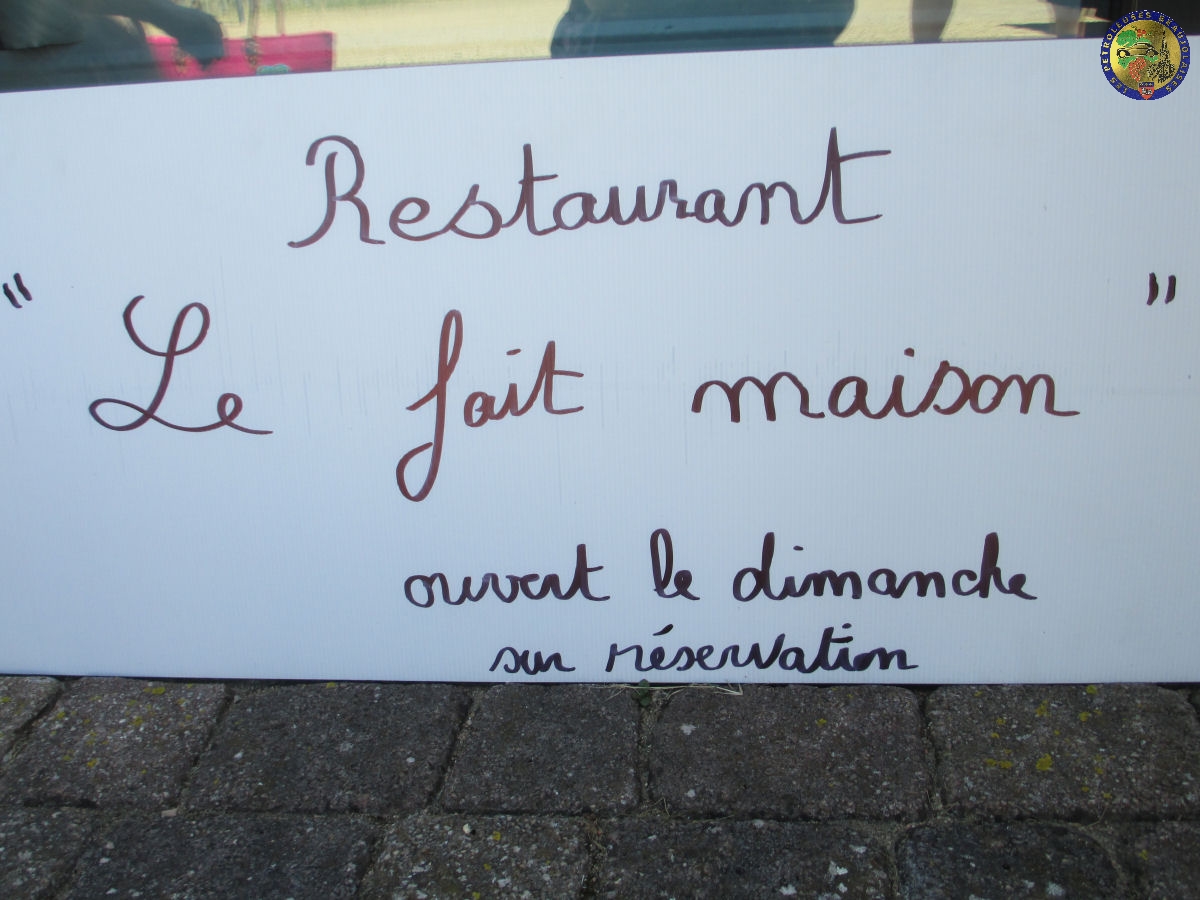 LES PETROLEUSES BEAUJOLAISES
Restaurant
" Le fait maison "
ouvert le dimanche
sur réservation